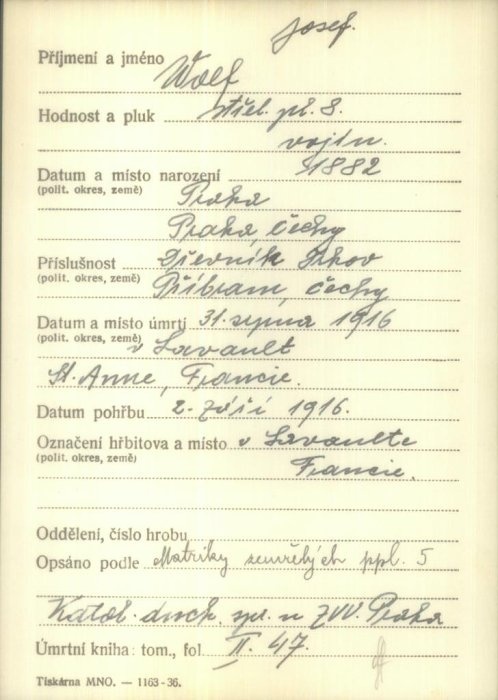 Josef.
Příjmení a jméno Wolf
Hodnost a pluk střel. pl. 8.
vojín.
Datum a místo narození 1882
(polit. okres, země) Praha
Praha Čechy
Příslušnost Dřevník
(polit. okres, země) Příbram, Čechy
Datum a místo úmrtí 31. srpna 1916
(polit. okres, země) v Lavault
St. Anne, Francie.
Datum pohřbu 2. září 1916.
Označení hřbitova a místo v Lavaulte
(polit. okres, země) Francie.
Oddělení, číslo hrobu
Opsáno podle Matriky zemřelých ppl. 5
Katol. duch. spr. u ZVV. Praha
Úmrtní kniha: tom., fol. II. 47.
Tiskárna MNO. — 1163-36.